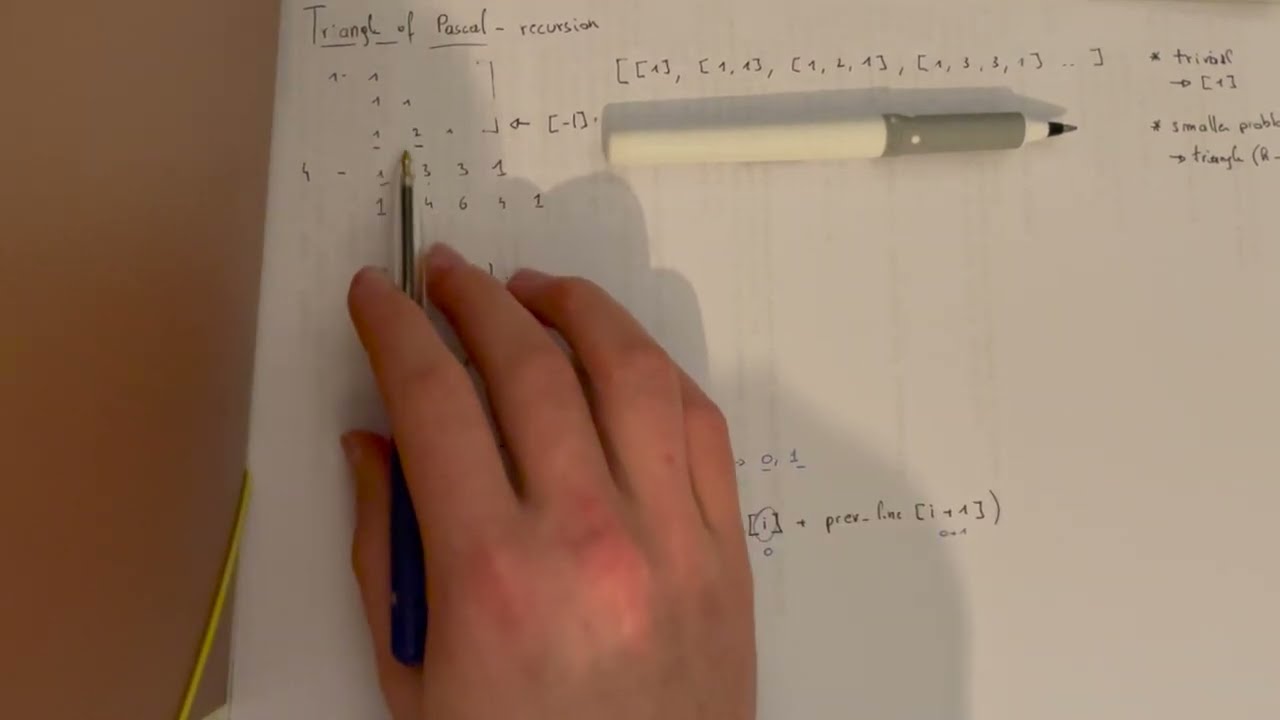 Triangle of Pascal - recursion
1- 1
1 1
1 2 1
4 - 1 3 3 1
1 4 6 4 1
← [-1].
[[1], [1,1], [1,2,1], [1,3,3,1] .. ]
* trivial
→ [1]
* smaller
→ triangle (R-
→ 0, 1
[i] + prev-line [i+1])
0
0+1